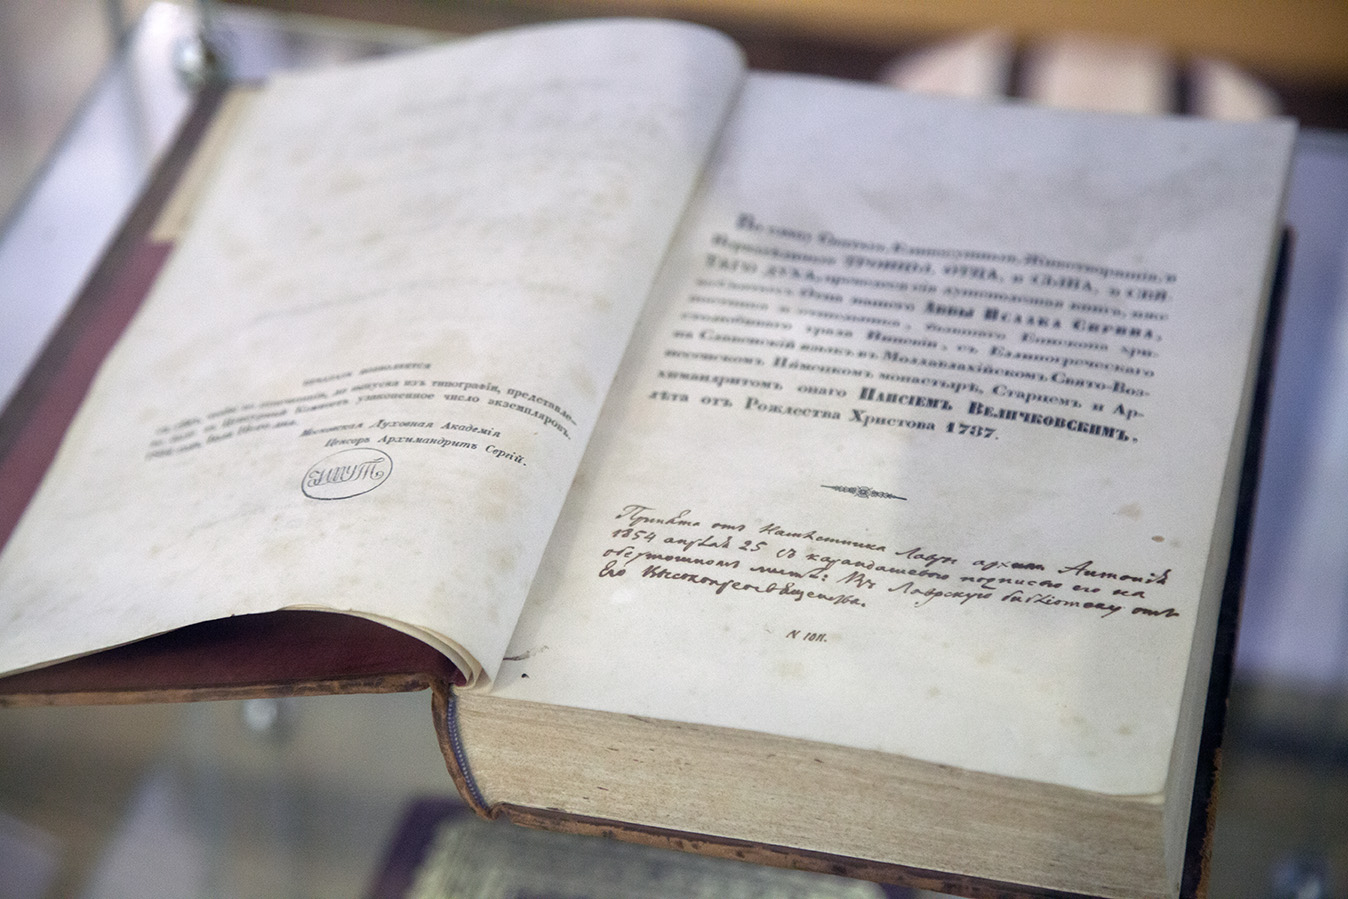 ПЕЧАТАТЬ ПОЗВОЛЯЕТСЯ
съ тѣмъ, чтобы по отпечатаніи, до выпуска изъ типографіи, представле-
но было въ Ценсурный Комитетъ узаконенное число экземпляровъ.
Московская Духовная Академія
Ценсоръ Архимандритъ Сергій.
Во славу Святыя, Единосущныя, Животворящія, и
Нераздѣлимыя ТРОИЦЫ, ОТЦА, и СЫНА, и СВЯ-
ТАГО ДУХА, преведеся сія душеполезная книга, иже
во Святыхъ Отца нашего Аввы Исаака Сирина,
постника и отшельника, бывшаго Епископа хри-
столюбиваго града Ниневіи, съ Еллиногреческаго
на Славенскій языкъ въ Молдавлахійскомъ Свято-Воз-
несенскомъ Нямецкомъ монастырѣ, Старцемъ и Ар-
химандритомъ онаго Паисіемъ Величковскимъ,
лѣта отъ Рождества Христова 1787.
Принята отъ Намѣстника Лавры архим Антонія
1854 апрѣля 25 съ карандашевою подписью его на
оберточномъ листѣ: Въ Лаврскую библіотеку отъ
Его Высокопреосвященства.
N 1011.